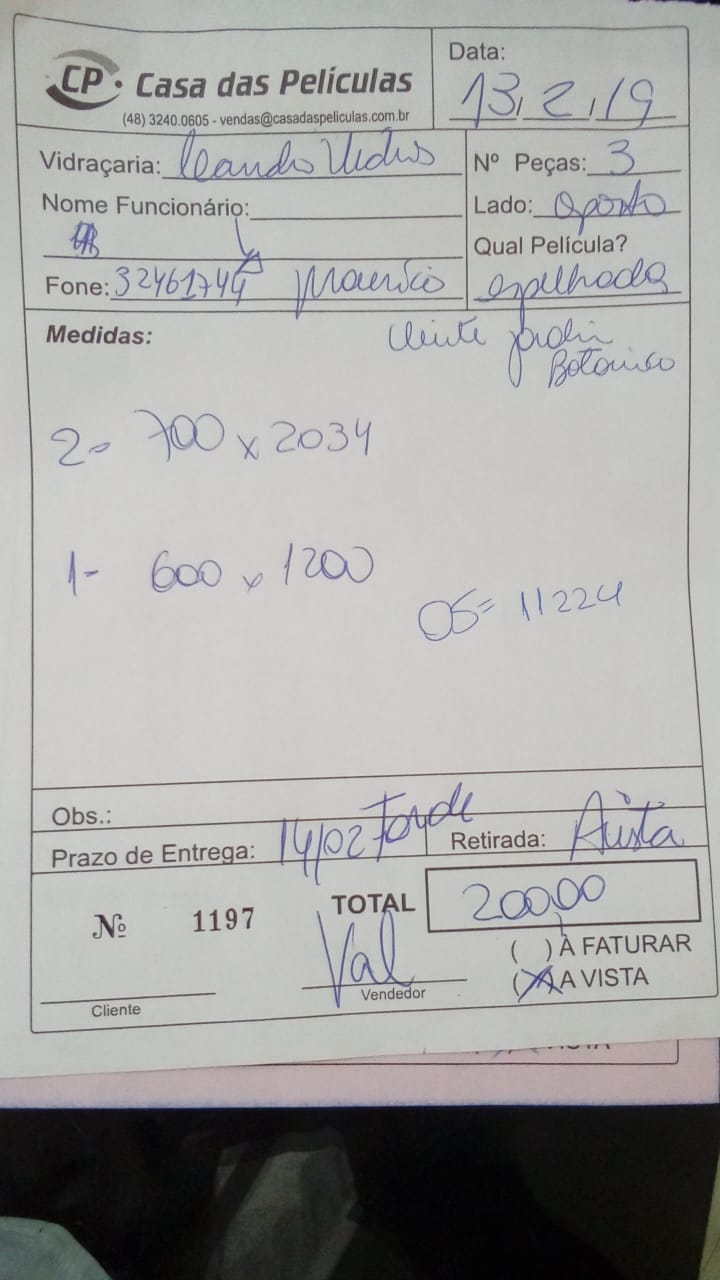 CP. Casa das Películas
(48) 3240.0605 - vendas@casadaspeliculas.com.br
Data:
13, 2, 19
Vidraçaria: Leandro Vidros
Nº Peças: 3
Nome Funcionário:
Lado: oposto
Qual Película?
Fone: 32461744 Mauricio
espelhada
Medidas:
cliente jardin
Botanico
2- 700 x 2034
1- 600 x 1200
OS= 11224
Obs.:
Prazo de Entrega: 14/02 Tarde
Retirada:
Nº 1197
TOTAL 200,00
( ) À FATURAR
(X) A VISTA
Val
Cliente
Vendedor